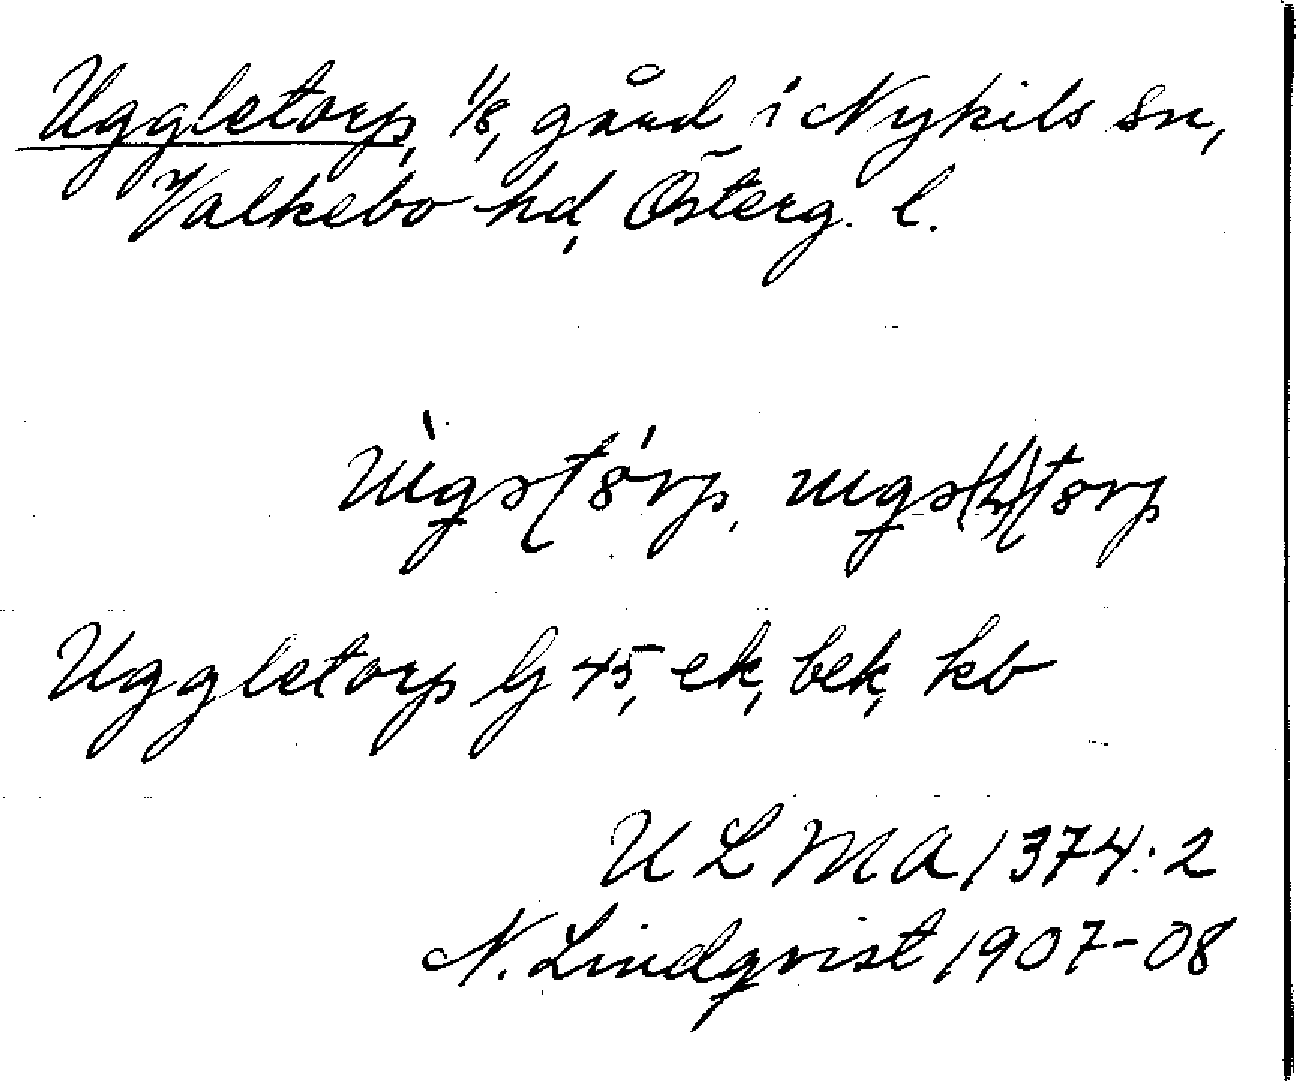 Uggletorp, 1/8, gård i Nykils sn,
Valkebo hd, Österg. l.
Uggletorp G 45, ek, bek, kb
ULMA 1374:2
N. Lindqvist 1907-08